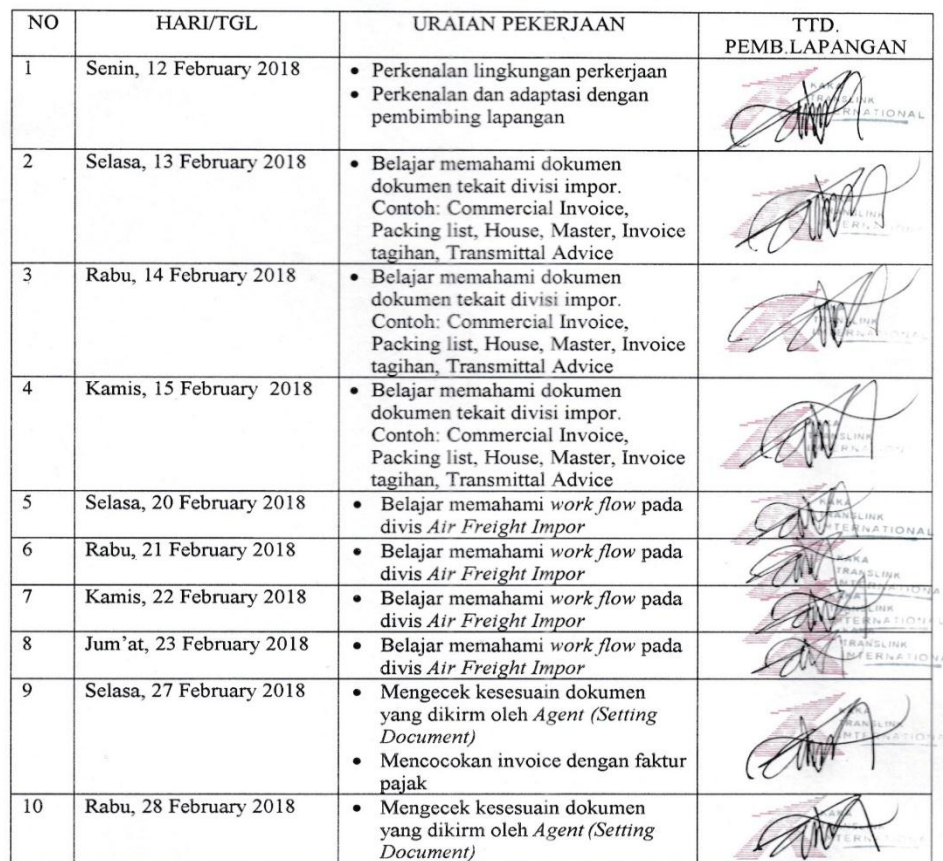 NO HARI/TGL URAIAN PEKERJAAN TTD.
PEMB.LAPANGAN
1 Senin, 12 February 2018 • Perkenalan lingkungan perkerjaan
• Perkenalan dan adaptasi dengan
pembimbing lapangan
KAKA
TRANSLINK
INTERNATIONAL
2 Selasa, 13 February 2018 • Belajar memahami dokumen
dokumen tekait divisi impor.
Contoh: Commercial Invoice,
Packing list, House, Master, Invoice
tagihan, Transmittal Advice
3 Rabu, 14 February 2018 • Belajar memahami dokumen
dokumen tekait divisi impor.
Contoh: Commercial Invoice,
Packing list, House, Master, Invoice
tagihan, Transmittal Advice
4 Kamis, 15 February 2018 • Belajar memahami dokumen
dokumen tekait divisi impor.
Contoh: Commercial Invoice,
Packing list, House, Master, Invoice
tagihan, Transmittal Advice
5 Selasa, 20 February 2018 • Belajar memahami work flow pada
divis Air Freight Impor
KAKA
TRANSLINK
INTERNATIONAL
6 Rabu, 21 February 2018 • Belajar memahami work flow pada
divis Air Freight Impor
KAKA
TRANSLINK
INTERNATIONAL
7 Kamis, 22 February 2018 • Belajar memahami work flow pada
divis Air Freight Impor
8 Jum'at, 23 February 2018 • Belajar memahami work flow pada
divis Air Freight Impor
TRANSLINK
INTERNATIONAL
9 Selasa, 27 February 2018 • Mengecek kesesuain dokumen
yang dikirm oleh Agent (Setting
Document)
• Mencocokan invoice dengan faktur
pajak
10 Rabu, 28 February 2018 • Mengecek kesesuain dokumen
yang dikirm oleh Agent (Setting
Document)